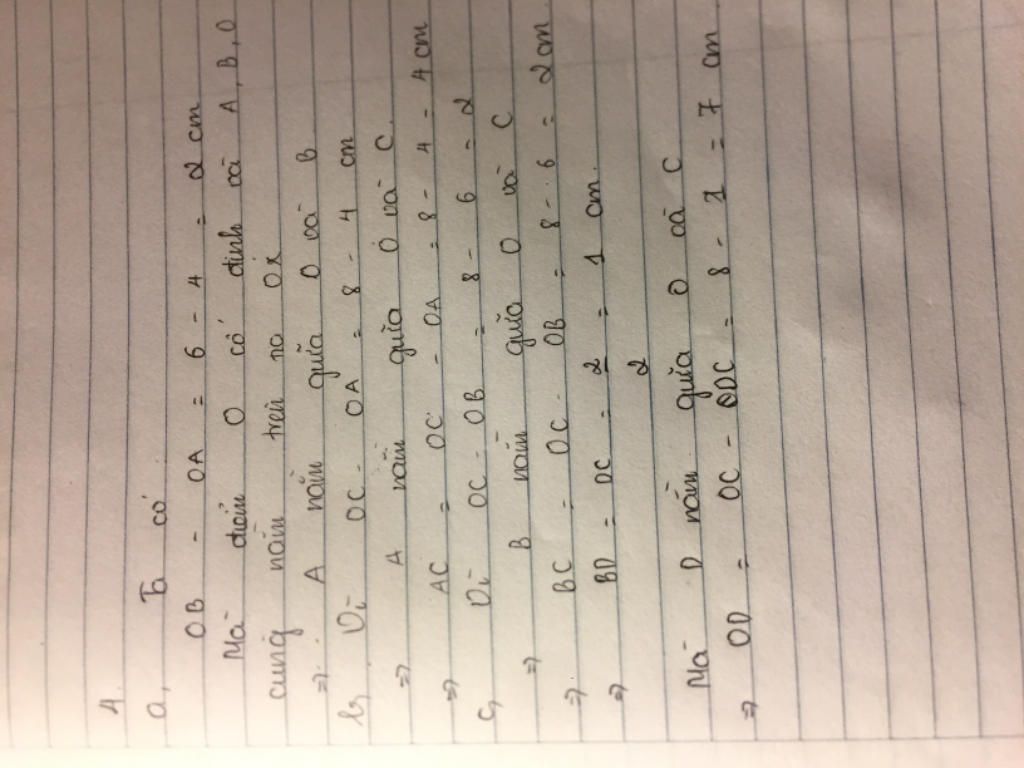 4.
a, Ta có
OB - OA = 6 - 4 = 2 cm
Mà điểm O cố định và A, B, O
cùng nằm trên na Ox
=> A nằm giữa O và B
b, Vì OC - OA = 8 - 4 cm
=> A nằm giữa O và C.
=> AC = OC - OA = 8 - 4 = 4 cm
c, Vì OC - OB = 8 - 6 = 2
=> B nằm giữa O và C
=> BC = OC - OB = 8 - 6 = 2 cm.
=> BD = DC = 2/2 = 1 cm.
Mà D nằm giữa O và C
=> OD = OC - DC = 8 - 1 = 7 cm